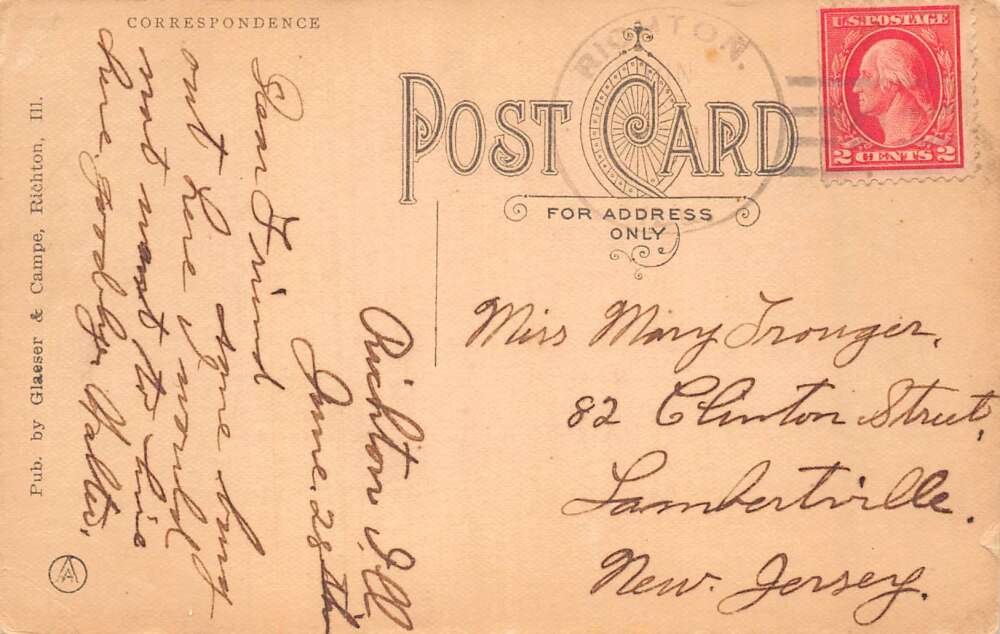 CORRESPONDENCE
Pub. by Glaeser & Campe, Richton, Ill.
POST CARD
FOR ADDRESS
ONLY
RICHTON.
U.S. POSTAGE
2 CENTS 2
Richton Ill
June. 28th
Dear Friend
out here some
not want to live
here. Goodbye Walter.
Miss Mary Tronger.
82 Clinton Street,
Lambertville.
New. Jersey.
A